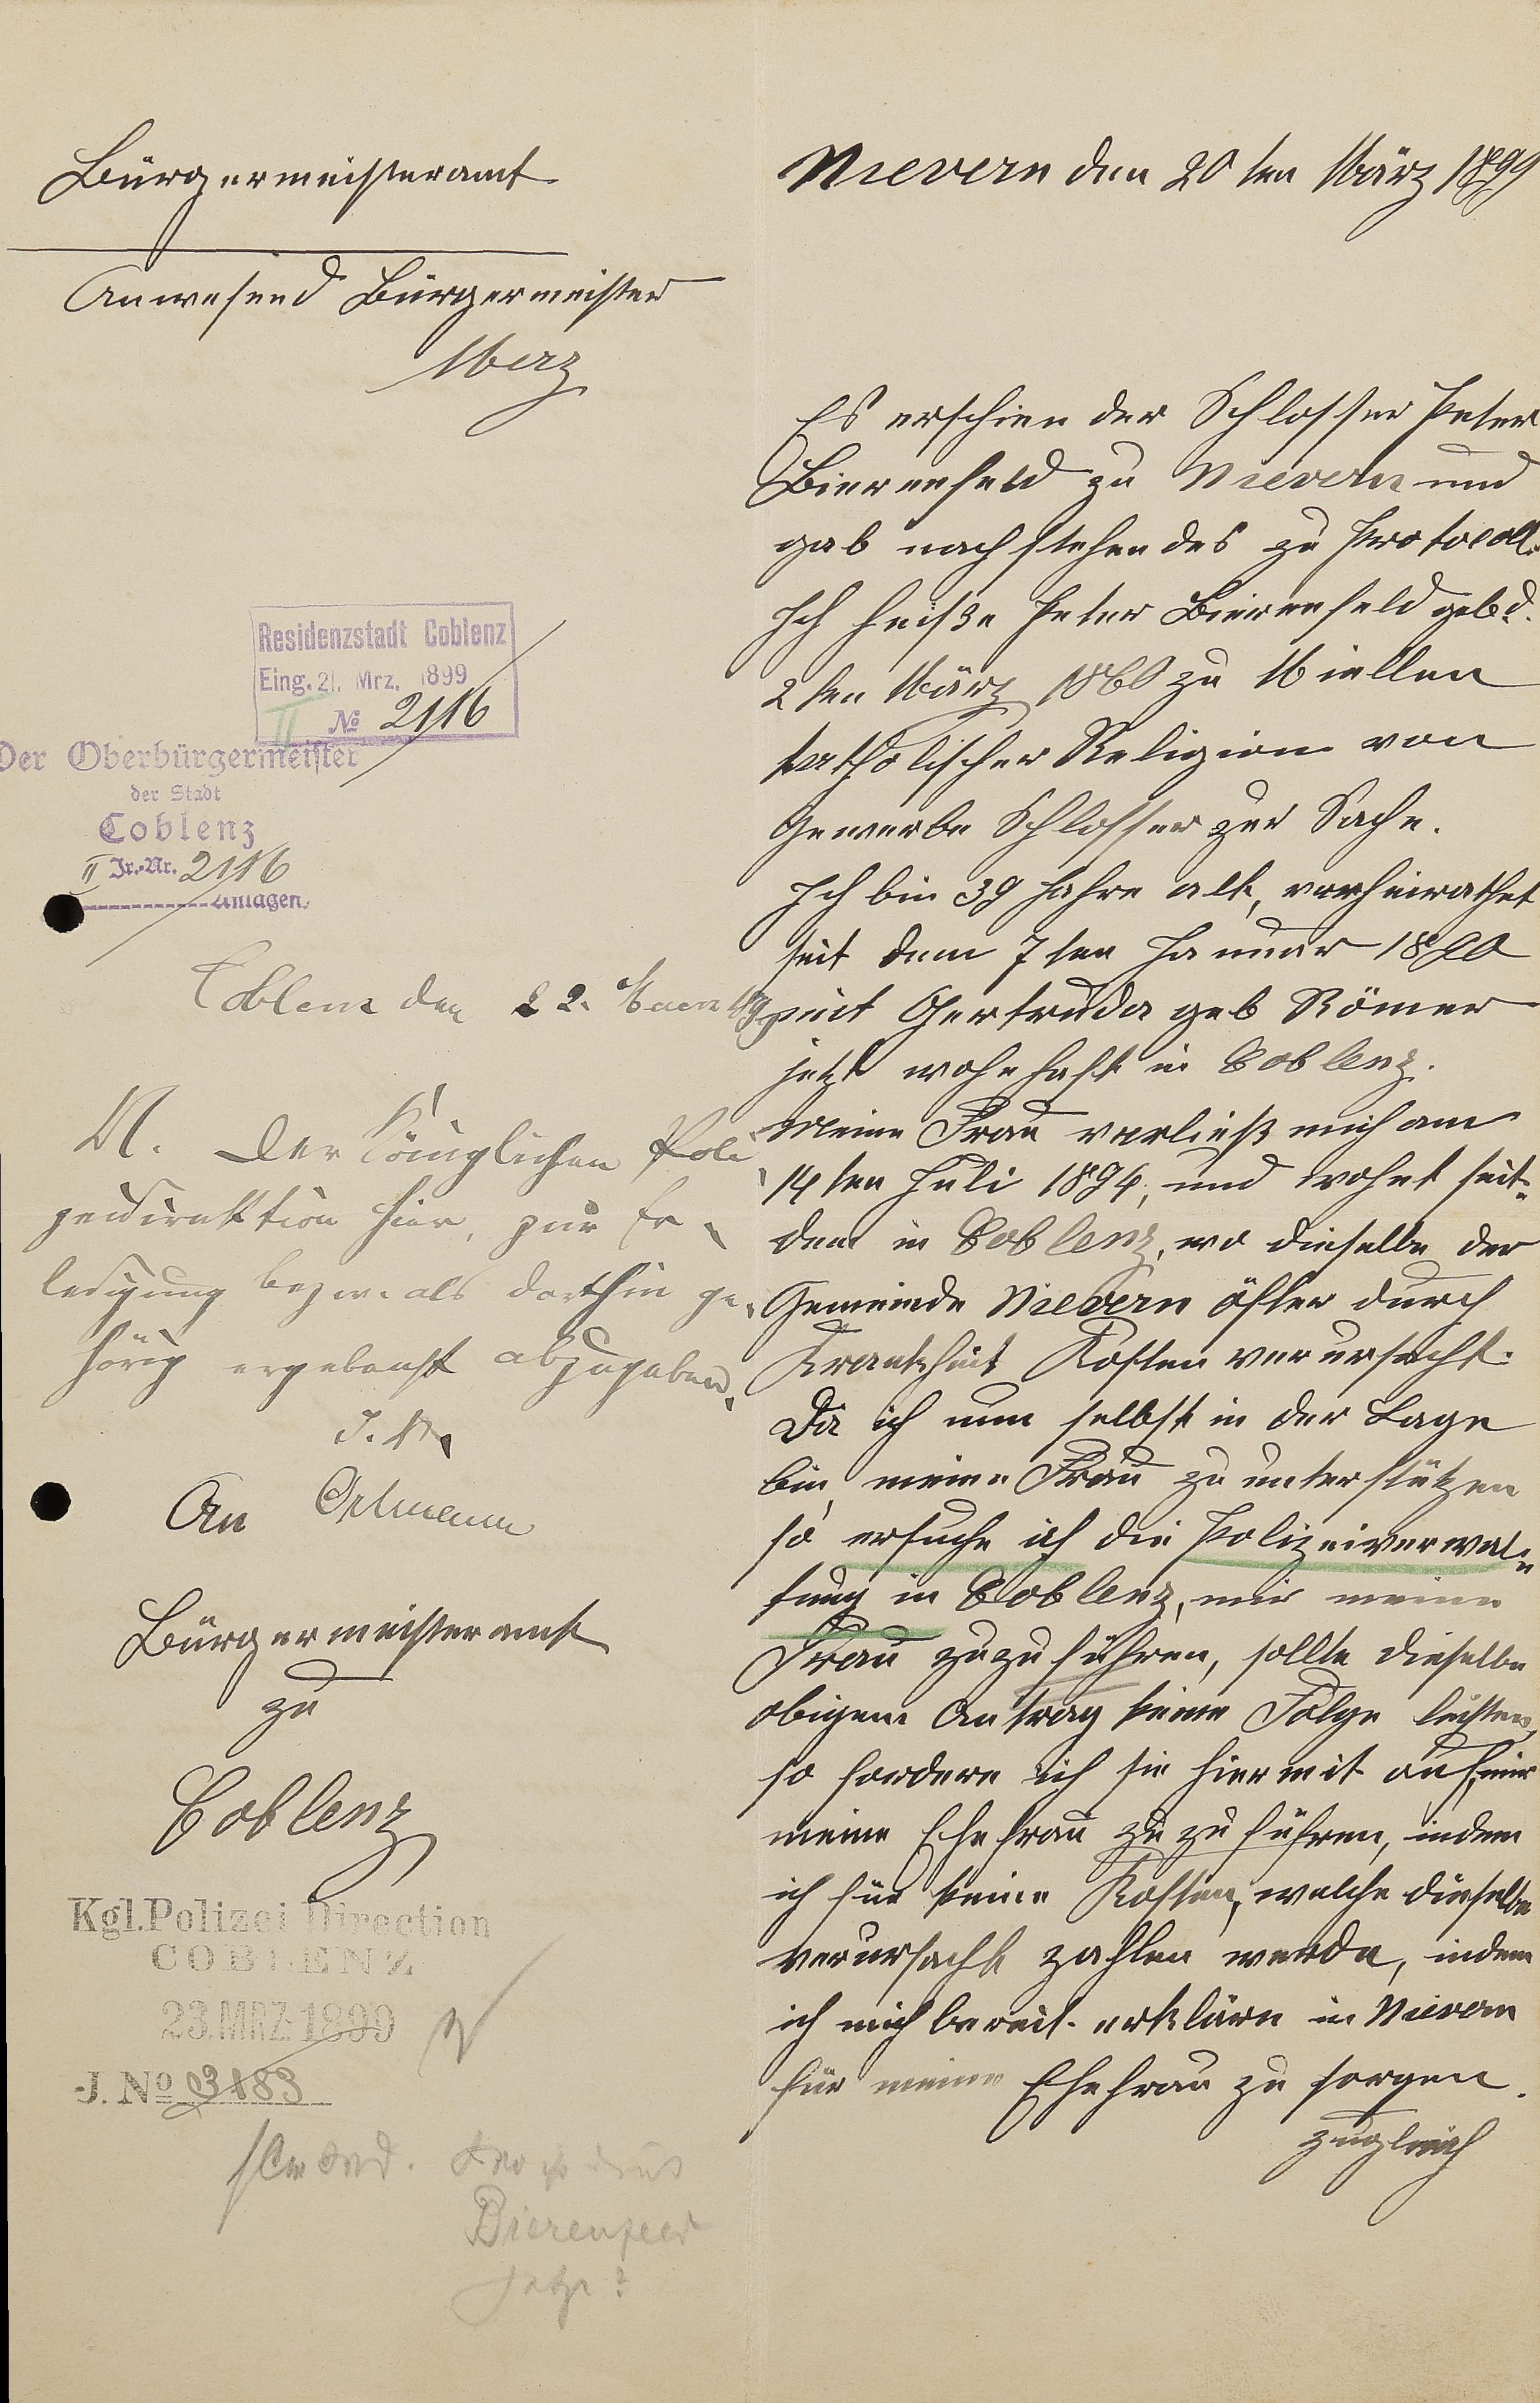 Bürgermeisteramt
Anwesend Bürgermeister
Merz
Residenzstadt Coblenz
Eing. 21. Mrz. 1899
II № 2116
Der Oberbürgermeister
der Stadt
Coblenz
II Jr.-Nr. 2116
Anlagen.
Coblenz den 22. Maerz 1899
U. Der Königlichen Poli
zeidirektion hier, zur Er-
ledigung bezw. als dorthin ge-
hörig ergebenst abzugeben.
J. V.
Ortmann
An
Bürgermeisteramt
zu
Coblenz
Kgl. Polizei Direction
COBLENZ
23. MRZ. 1899
J. № 3183
Bierenfeld
jetzt?
Nievern den 20ten März 1899
Es erschien der Schlosser Peter
Bierenfeld zu Nievern und
gab nachstehendes zu Protocoll.
Ich heiße Peter Bierenfeld gebd.
2ten März 1860 zu Miellen
katholischer Religion von
Gewerbe Schlosser zur Sache.
Ich bin 39 Jahre alt, verheirathet
seit dem 7ten Januar 1890
mit Gertruda geb Römer
jetzt wohnhaft in Coblenz.
Meine Frau verließ mich am
14ten Juli 1894, und wohnt seit-
dem in Coblenz, wo dieselbe der
Gemeinde Nievern öfter durch
Krankheit Kosten verursacht.
Da ich nun selbst in der Lage
bin meine Frau zu unterstützen
so ersuche ich die Polizeiverwal-
tung in Coblenz, mir meine
Frau zuzuführen, sollte dieselbe
obigem Antrag keine Folge leisten,
so fordere ich sie hiermit auf, mir
meine Ehefrau zu zu führen, indem
ich für keine Kosten, welche dieselbe
verursacht zahlen werde, indem
ich mich bereit erkläre in Nievern
für meine Ehefrau zu sorgen.
zugleich